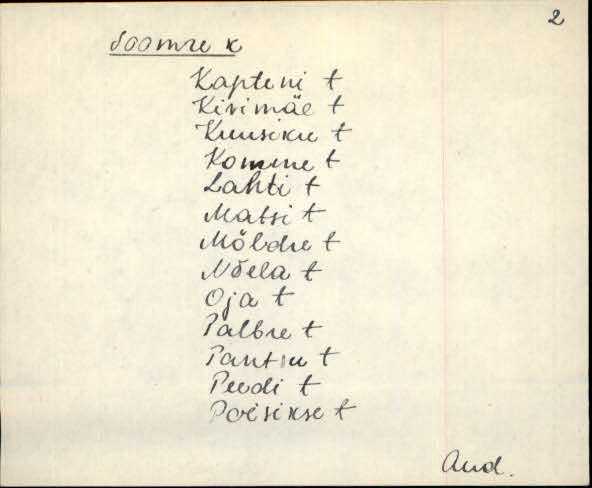 2
Soomre k
Kapteni t
Kivimäe t
Kuusiku t
Komme t
Lahti t
Matsi t
Mõldre t
Nõela t
Oja t
Palbre t
t
Peedi t
Poisikse t
Aud.